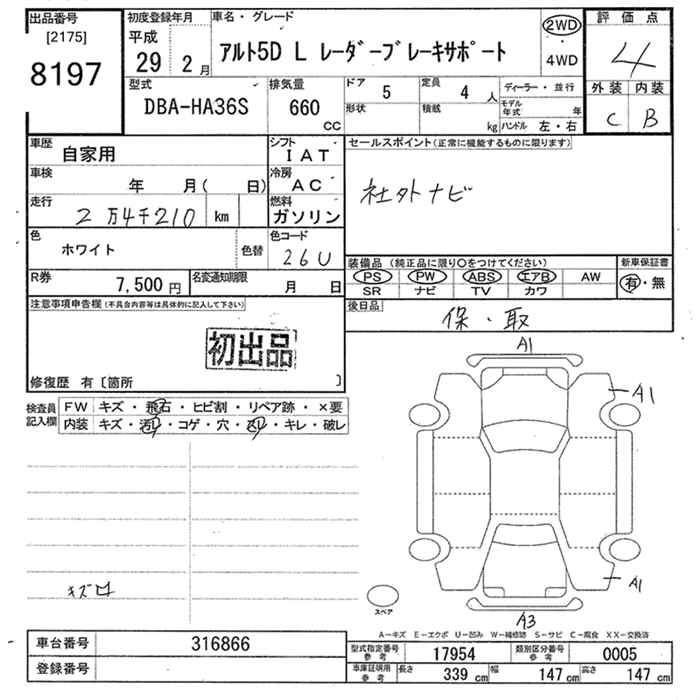 出品番号
[2175]
8197
初度登録年月
平成
29 2月
車名・グレード
アルト5D L レーダーブレーキサポート
2WD
・
4WD
評価点
4
外装 内装
C B
型式
DBA-HA36S
排気量
660
CC
ドア 5
形状
定員 4 人
積載 kg
ディーラー・並行
モデル年式 年
ハンドル 左・右
車歴 自家用
シフト IAT
車検 年 月( 日)
冷房 AC
走行 2万4千210 km
燃料 ガソリン
色 ホワイト
色替
色コード 26U
R券 7,500円
名変通知期限 月 日
セールスポイント(正常に機能するものに限ります)
社外ナビ
装備品(純正品に限り〇をつけてください)
PS PW ABS エアB AW
SR ナビ TV カワ
新車保証書
有・無
後日品
保・取
注意事項申告欄(不具合内容等は具体的に記入して下さい)
初出品
修復歴 有〔箇所 〕
検査員記入欄
FW キズ・飛石・ヒビ割・リペア跡・×要
内装 キズ・汚れ・コゲ・穴・スレ・キレ・破レ
A1
A1
A1
A3
キズ
スペア
A−キズ E−エクボ U−凹み W−補修跡 S−サビ C−腐食 XX−交換済
車台番号 316866
登録番号
型式指定番号 参考 17954
類別区分番号 参考 0005
車庫証明用 参考
長さ 339 cm
幅 147 cm
高さ 147 cm